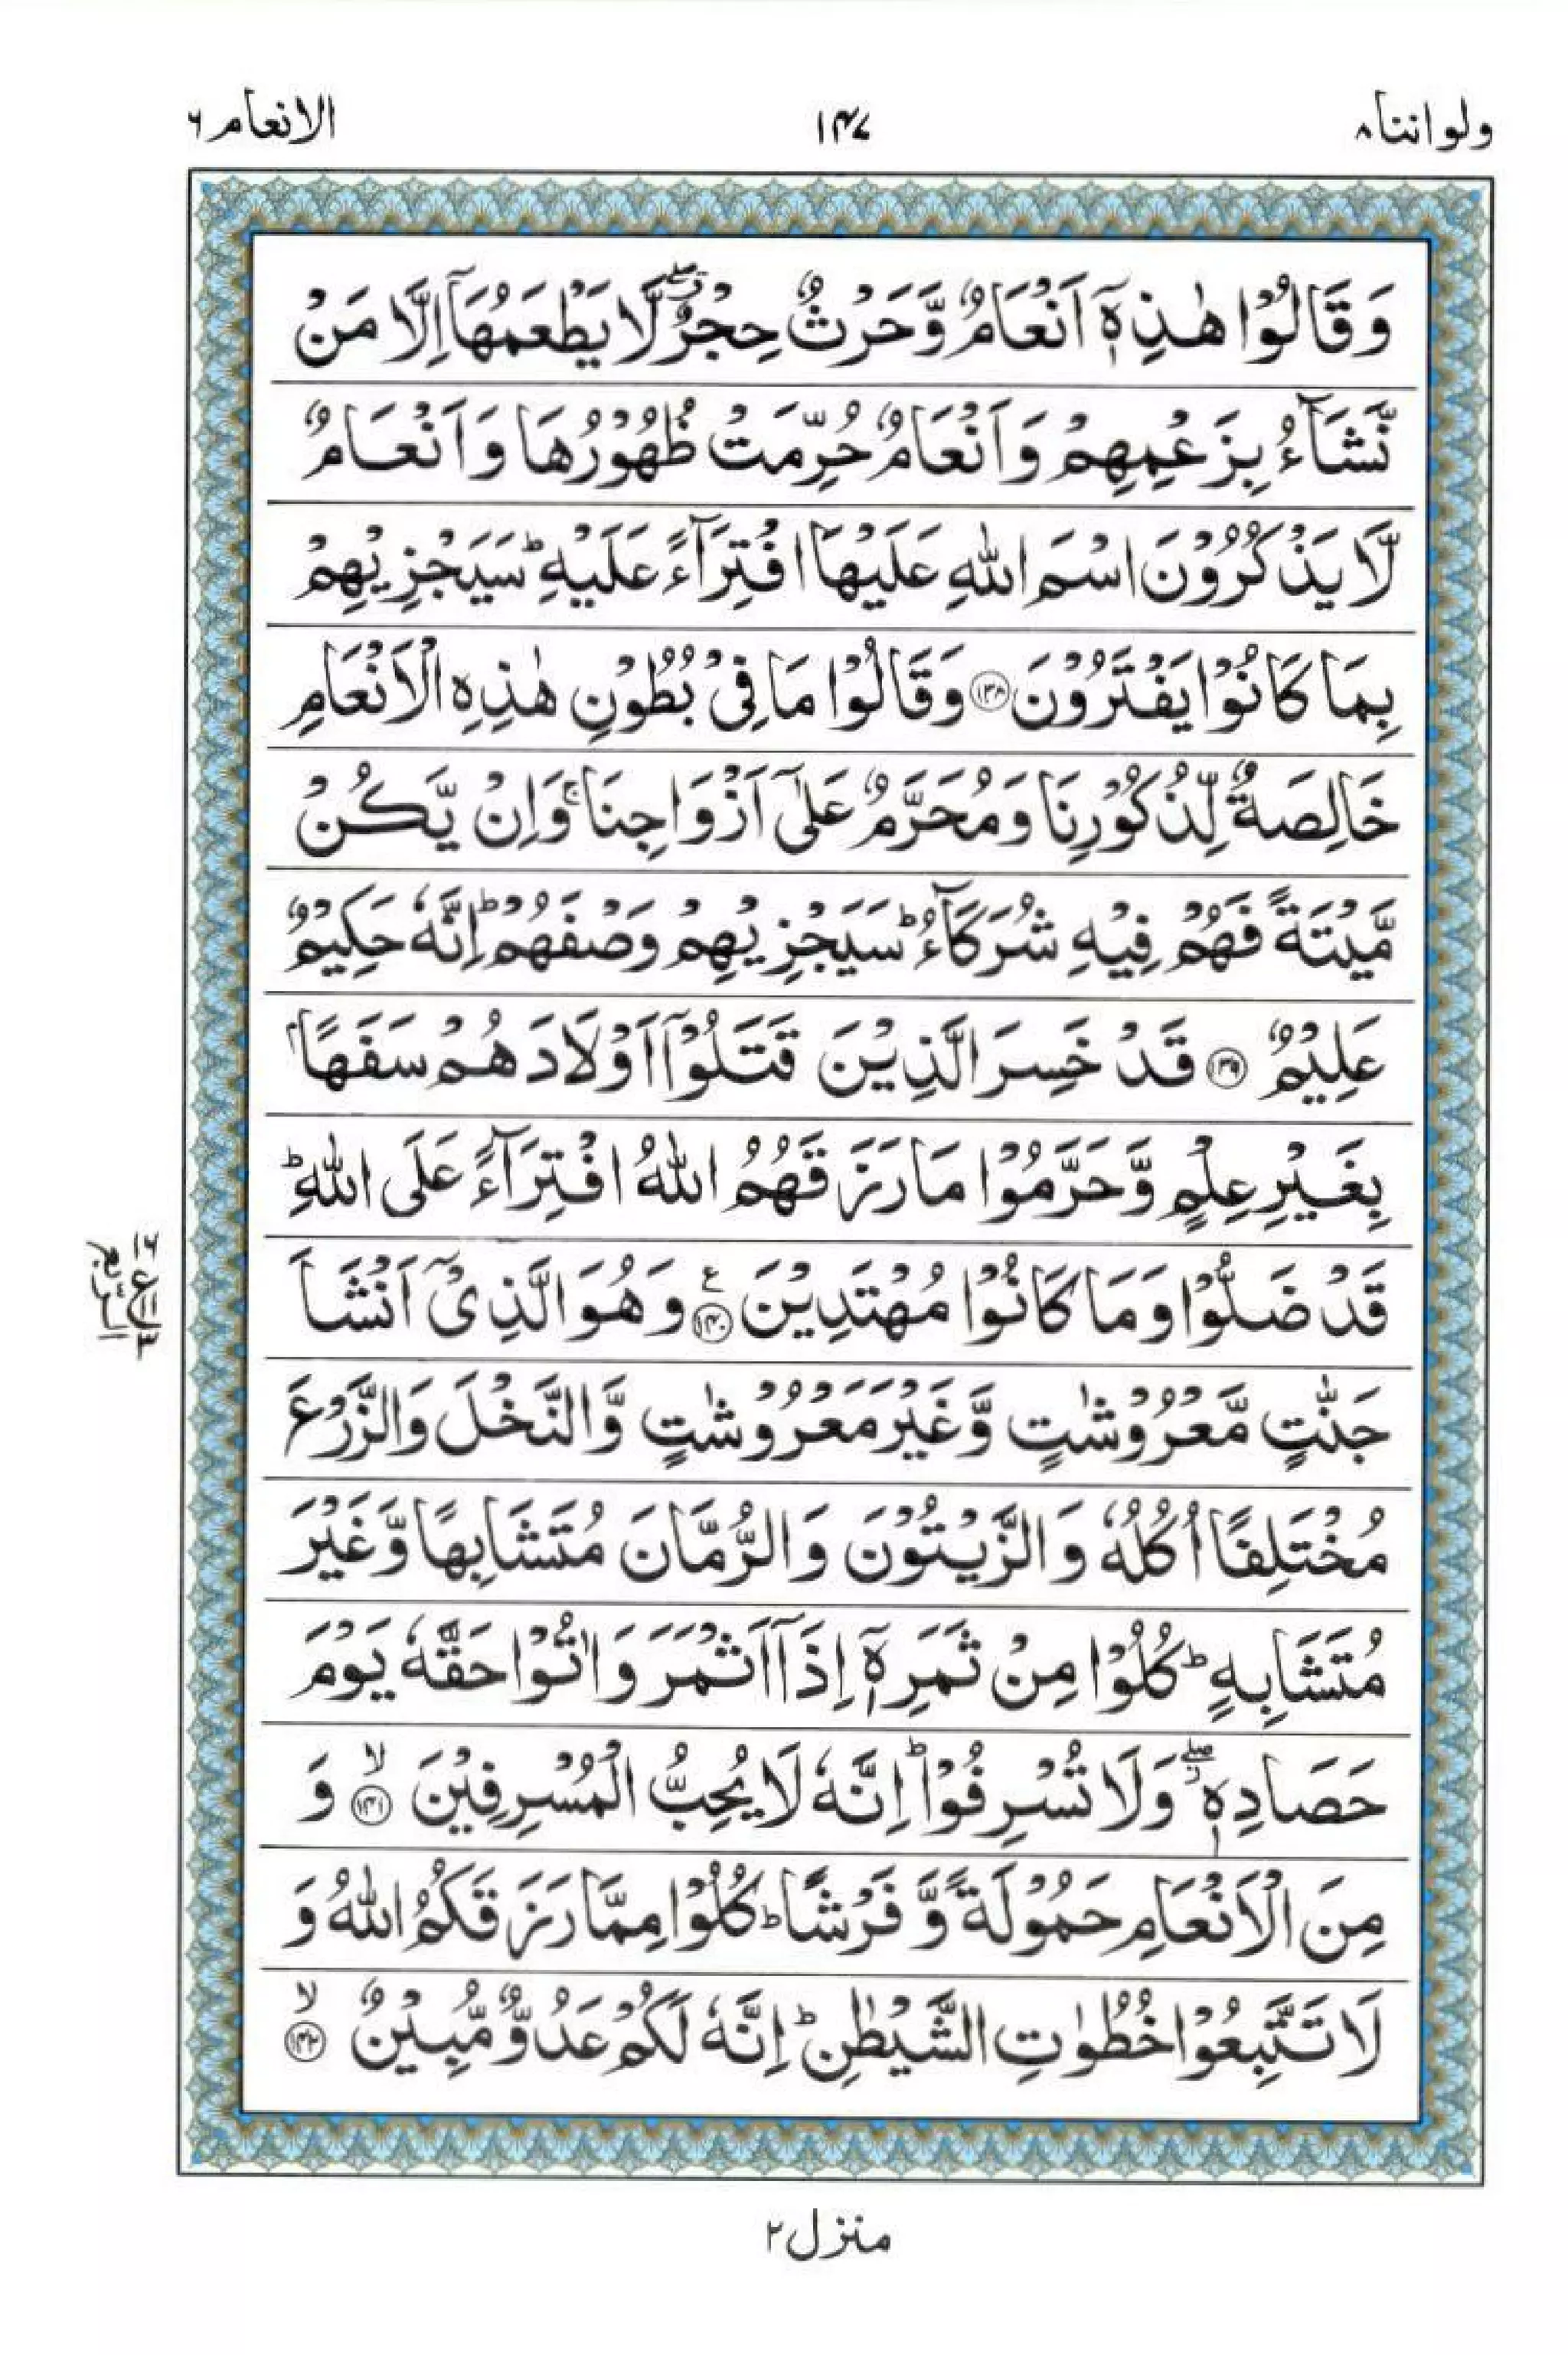 ولواننا ٨
١٤٧
الانعام ٦
وَقَالُوْا هٰذِهٖٓ اَنْعَامٌ وَّحَرْثٌ حِجْرٌ ۖۗ لَّا يَطْعَمُهَاۤ اِلَّا مَنْ
نَّشَآءُ بِزَعْمِهِمْ وَاَنْعَامٌ حُرِّمَتْ ظُهُوْرُهَا وَاَنْعَامٌ
لَّا يَذْكُرُوْنَ اسْمَ اللّٰهِ عَلَيْهَا افْتِرَآءً عَلَيْهِ ؕ سَيَجْزِيْهِمْ
بِمَا كَانُوْا يَفْتَرُوْنَ ﴿١٣٨﴾ وَقَالُوْا مَا فِيْ بُطُوْنِ هٰذِهِ الْاَنْعَامِ
خَالِصَةٌ لِّذُكُوْرِنَا وَمُحَرَّمٌ عَلٰٓى اَزْوَاجِنَا ۚ وَاِنْ يَّكُنْ
مَّيْتَةً فَهُمْ فِيْهِ شُرَكَآءُ ؕ سَيَجْزِيْهِمْ وَصْفَهُمْ ؕ اِنَّهٗ حَكِيْمٌ
عَلِيْمٌ ﴿١٣٩﴾ قَدْ خَسِرَ الَّذِيْنَ قَتَلُوْۤا اَوْلَادَهُمْ سَفَهًاۢ
بِغَيْرِ عِلْمٍ وَّحَرَّمُوْا مَا رَزَقَهُمُ اللّٰهُ افْتِرَآءً عَلَى اللّٰهِ ؕ
قَدْ ضَلُّوْا وَمَا كَانُوْا مُهْتَدِيْنَ ﴿١٤٠﴾ ع وَهُوَ الَّذِيْۤ اَنْشَاَ
جَنّٰتٍ مَّعْرُوْشٰتٍ وَّغَيْرَ مَعْرُوْشٰتٍ وَّالنَّخْلَ وَالزَّرْعَ
مُخْتَلِفًا اُكُلُهٗ وَالزَّيْتُوْنَ وَالرُّمَّانَ مُتَشَابِهًا وَّغَيْرَ
مُتَشَابِهٍ ؕ كُلُوْا مِنْ ثَمَرِهٖٓ اِذَاۤ اَثْمَرَ وَاٰتُوْا حَقَّهٗ يَوْمَ
حَصَادِهٖ ۖؗ وَلَا تُسْرِفُوْا ؕ اِنَّهٗ لَا يُحِبُّ الْمُسْرِفِيْنَ ﴿١٤١﴾ۙ وَ
مِنَ الْاَنْعَامِ حَمُوْلَةً وَّفَرْشًا ؕ كُلُوْا مِمَّا رَزَقَكُمُ اللّٰهُ وَ
لَا تَتَّبِعُوْا خُطُوٰتِ الشَّيْطٰنِ ؕ اِنَّهٗ لَكُمْ عَدُوٌّ مُّبِيْنٌ ﴿١٤٢﴾ۙ
ع
الربع
منزل ٢